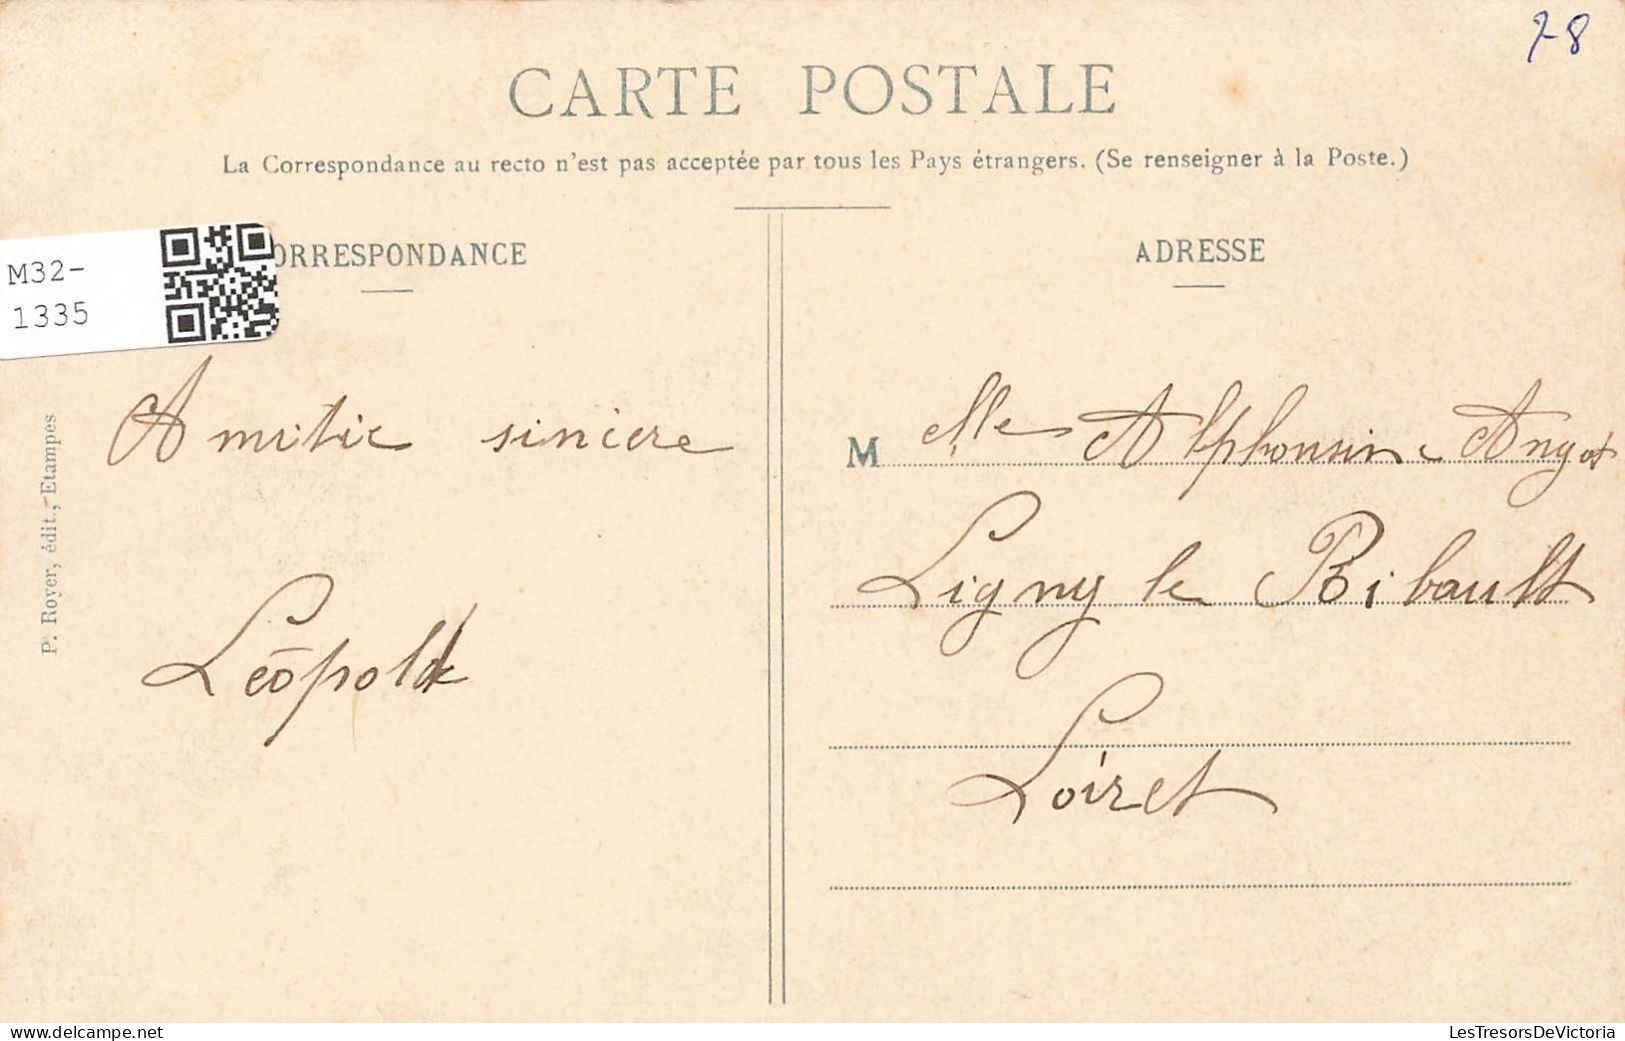 78
CARTE POSTALE
La Correspondance au recto n'est pas acceptée par tous les Pays étrangers. (Se renseigner à la Poste.)
M32-
1335
ORRESPONDANCE
Amitié sincere
Léopold
P. Royer, édit., Etampes
ADRESSE
M elle Alphonsine Angot
Ligny le Ribault
Loiret
LesTresorsDeVictoria